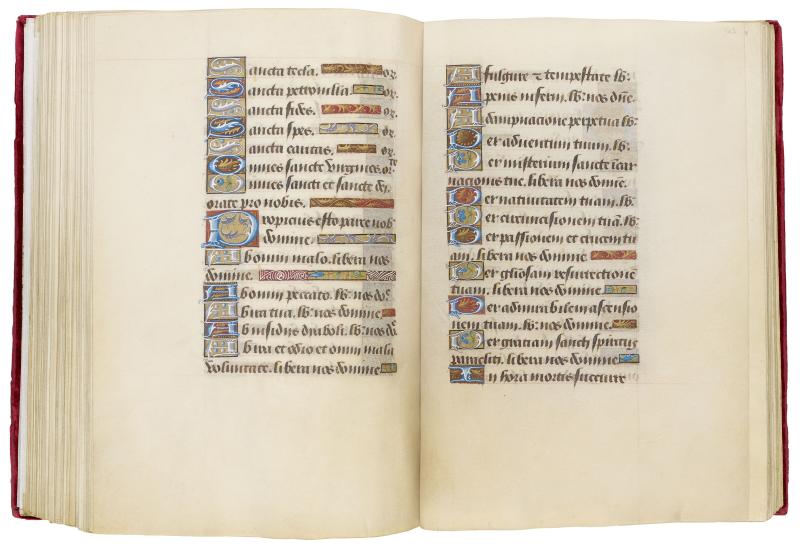 Sancta tecla. or.
Sancta petronilla. or.
Sancta fides. or.
Sancta spes. or.
Sancta caritas. or.
Omnes sancte virgines. orte
Omnes sancti et sancte dei
orate pro nobis.
Propicius esto parce nob
domine.
Ab omni malo. libera nos
domine.
Ab omni peccato. lb: nos do
Ab ira tua. lb: nos domine
Ab insidiis dyaboli. lb: nos do
Ab ira et odio et omni mala
voluntate. libera nos domine
A fulgure et tempestate lb:
A penis inferni. lb: nos dne
A dampnacione perpetua lb:
Per adventum tuum. lb:
Per misterium sancte incar
nacionis tue. libera nos domine.
Per nativitatem tuam. lb:
Per circumcisionem tuam. lb:
Per passionem et crucem tu
am. libera nos domine
Per gliosam resurrectione
tuam. libera nos domine
Per admirabilem ascensio
nem tuam. lb: nos domine.
Per gratiam sancti spiritus
paracliti. libera nos domine
In hora mortis succurre